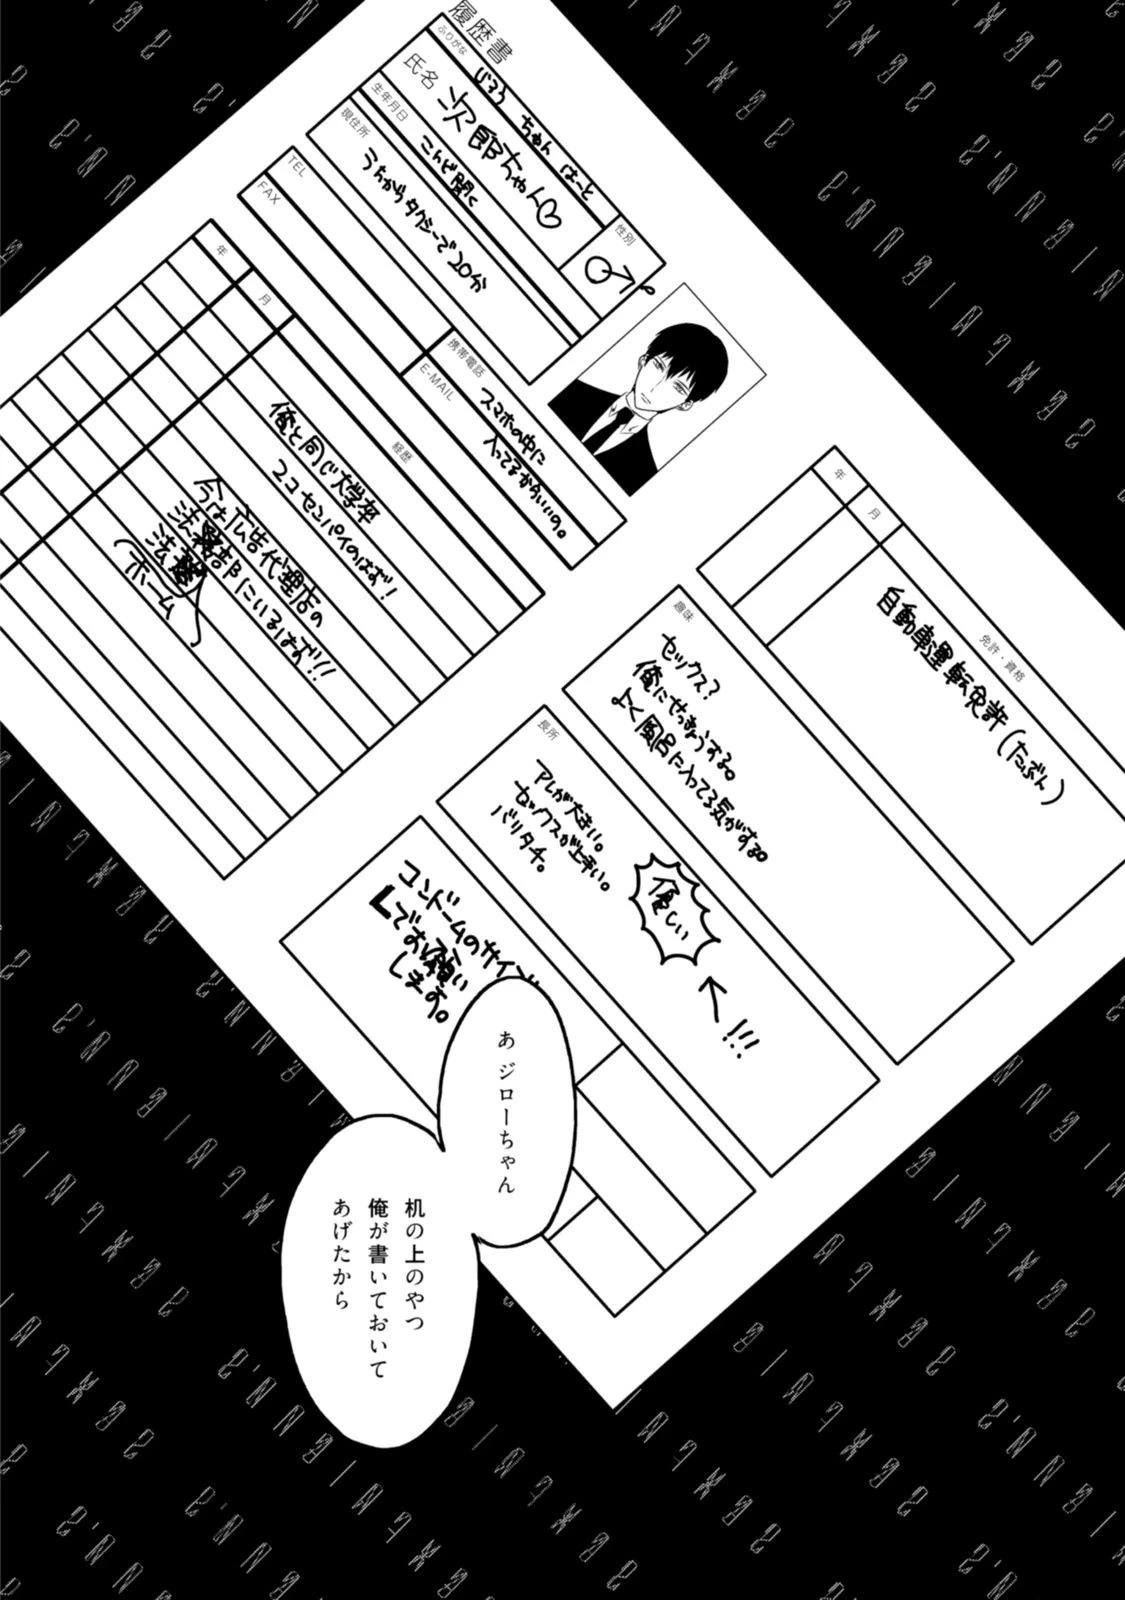 履歴書
ふりがな
じろう ちゃん はーと
氏名
次郎ちゃん♡
性別
♂
生年月日
こんど聞く
現住所
うちからタクシーで20分
TEL
FAX
携帯電話
スマホの中に
入ってるからいいの。
E-MAIL
年
月
経歴
俺と同じ大学卒
2コ センパイのはず!
今は広告代理店の
法務部にいるはず!!
法務
ホーム
年
月
免許・資格
自動車運転免許(たぶん)
趣味
セックス?
俺にせっきょうする。
風呂に入ってる気がする。
長所
アレが大きい。
セックスが上手い。
バリタチ。
優しい
!!!
コンドームのサイズ
Lでお願い
します。
あ ジローちゃん
机の上のやつ
俺が書いておいて
あげたから